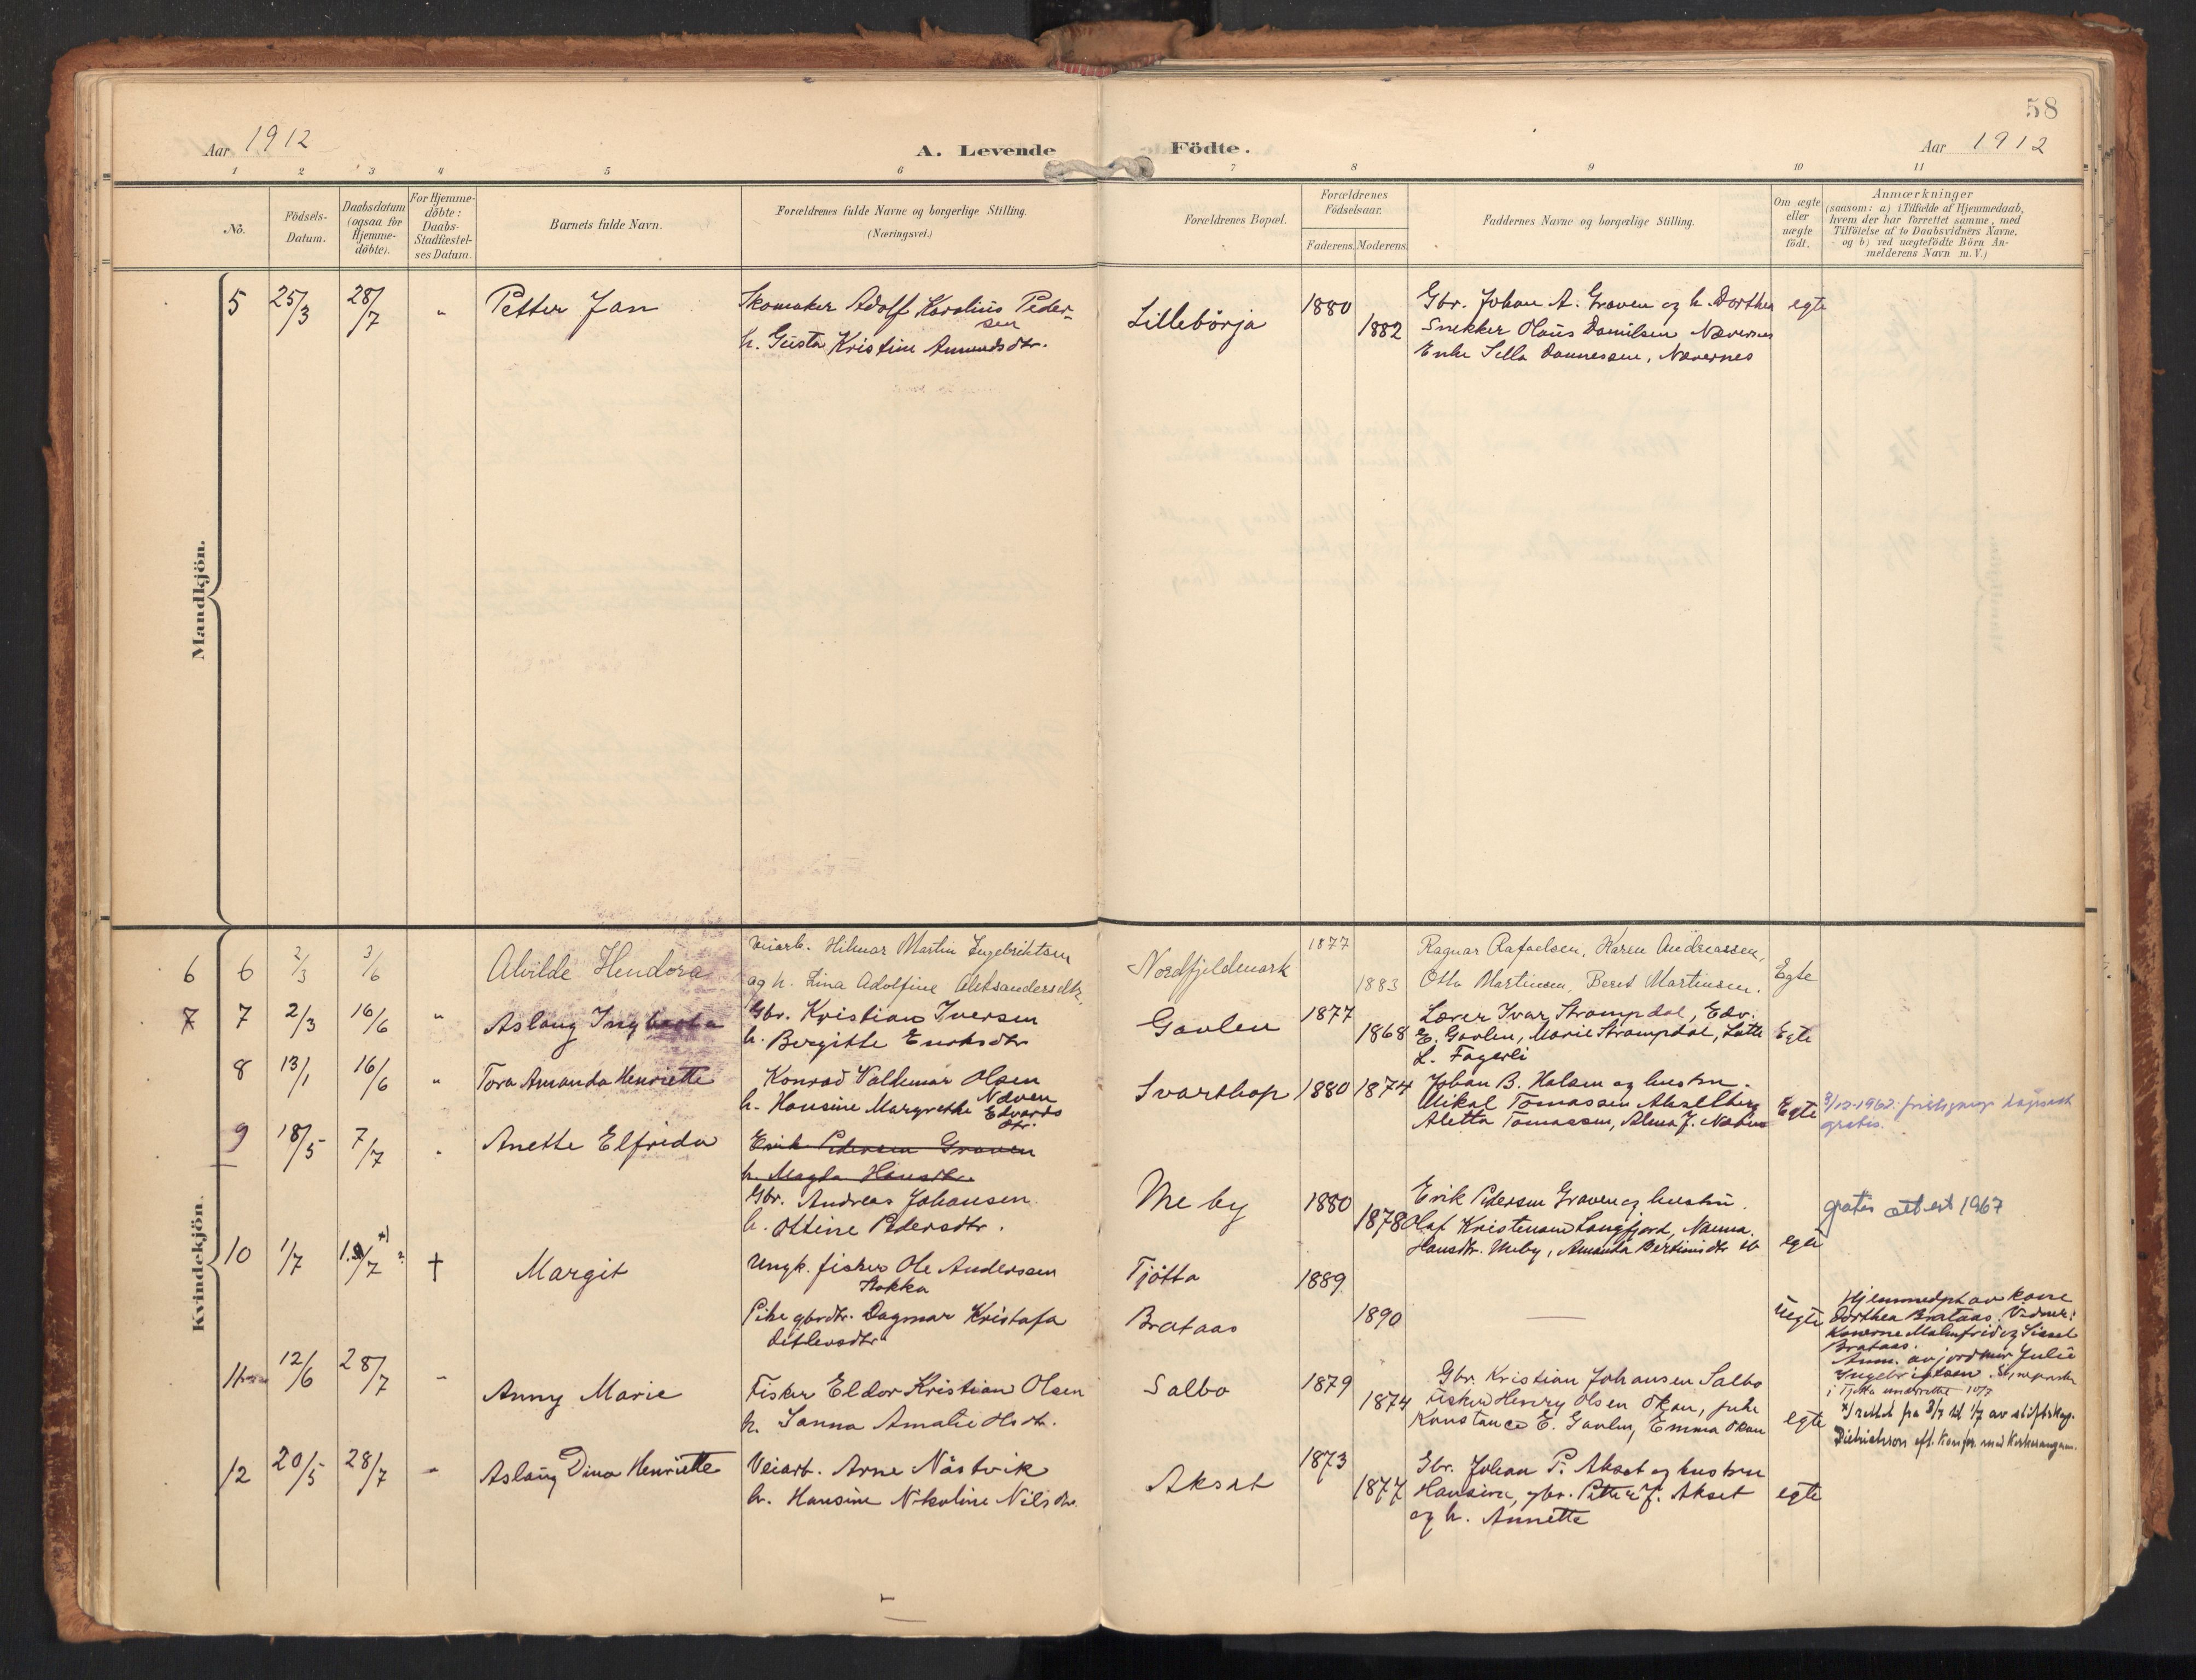 58
Aar 1912
A. Levende Födte.
Aar 1912
1 2 3 4 5 6 7 8 9 10 11
No.
Födsels-Datum.
Daabsdatum (ogsaa for Hjemme-döbte).
For Hjemme-döbte: Daabs-Stadfæstel-ses Datum.
Barnets fulde Navn.
Forældrenes fulde Navne og borgerlige Stilling.
(Næringsvei.)
Forældrenes Bopæl.
Forældrenes Födselsaar.
Faderens. Moderens.
Faddernes Navne og borgerlige Stilling.
Om ægte eller uægte födt.
Anmærkninger
(saasom: a) i Tilfælde af Hjemmedaab,
hvem der har forrettet samme, med
Tilföielse af to Daabsvidners Navne,
og b) ved uægtefödte Börn An-
melderens Navn m.V.)
Mandkjön.
5 25/3 28/7 " Petter Jan
Skomaker Adolf Karolius Peder-
sen
h. Gusta Kristine Amundsdtr.
Lillebörja 1880 1882
Gbr. Johan A. Graven og h. Dorthea
Snekker Olaus Danilsen Nævernes
Enke Silla Dannessen, Nævernes
egte
Kvindekjön.
6 6 2/3 3/6 Alvilde Hendora
Veiarb. Hilmar Martin Ingebriktsen
og h. Lina Adolfine Aleksandersdtr.
Nordfjeldmark 1877 1883
Ragnar Rafaelsen, Karen Andreassen,
Otto Martinsen, Beret Martinsen.
Egte
7 7 2/3 16/6 " Aslaug Ingeborg
Gbr. Kristian Iversen
h. Bergitte Enoksdtr
Gaulen 1877 1868
Lærer Ivar Strømpdal, Edv.
E. Gaulen, Marie Strømpdal, Lotte
L. Fagerli
Egte
8 13/1 16/6 " Tora Amanda Henriette
Konrad Valdemar Olsen
Næven
h. Hansine Margrethe Edvards
dtr.
Svarthop 1880 1874
Johan B. Halsen og hustru.
Mikal Tomassen
Aletta Tomassen, Alma J.
Egte
3/10-1962: gratis.
9 18/5 7/7 " Anette Elfrida
Erik Pedersen Graven
h. Magda Hansdtr.
Gbr. Andreas Johansen
h. Ottine Pedersdtr.
Meby 1880 1878
Erik Pedersen Graven og hustru.
Olaf Kristensen Langfjord, Nanna
Hansdtr. Meby, Amanda
egte
gratis attest 1967
10 1/7 /7 † Margit
Ungk. fisker Ole Anderssen
Stokka
Pike gbrdtr. Dagmar Kristofa
Ditlevsdtr
Tjötta 1889
Brataas 1890
—
Uegte
Hjemmedøpt av kone
Dorthea Brataas. Vidner:
Konerne Malmfrid og Sissel
Brataas.
Anm. av jordmor Julie
Ingebrigtsen.
i Tjötta underrettet 10/7
x) rettet fra 8/7 til 1/7 av stiftskap.
Dietrichson eft. konfer. med Kirkesanger.
11 12/6 28/7 " Anny Marie
Fisker Eldor Kristian Olsen
h. Janna Amalie Olsdtr.
Salbo 1879 1874
Gbr. Kristian Johansen Salbo
Fisker Henry Olsen Økan, pike
Konstance E. Gaulen, Emma Økan
egte
12 20/5 28/7 " Aslaug Dina Henriette
Veiarb. Arne Nåstvik
h. Hansine Nikoline Nilsdtr.
Akset 1873 1877
Gbr. Johan P. Akset og hustru
Hansine, gbr. Petter J. Akset
og h. Annette
egte